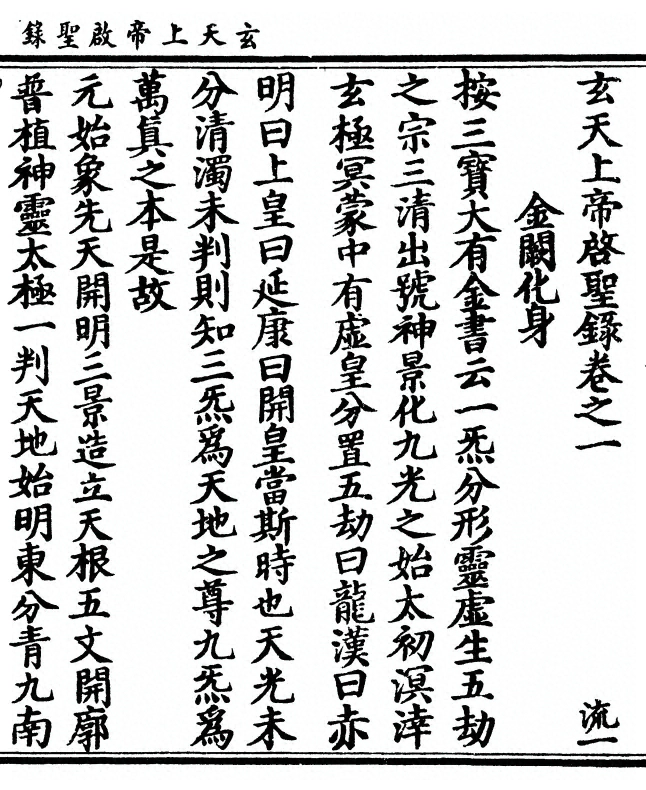 玄天上帝啟聖錄
玄天上帝啓聖錄卷之一
流一
金闕化身
按三寶大有金書云一炁分形靈虛生五劫
之宗三清出號神景化九光之始太初溟涬
玄極冥蒙中有虛皇分置五劫曰龍漢曰赤
明曰上皇曰延康曰開皇當斯時也天光未
分清濁未判則知三炁爲天地之尊九炁爲
萬眞之本是故
元始象先天開明三景造立天根五文開廓
普植神靈太極一判天地始明東分青九南